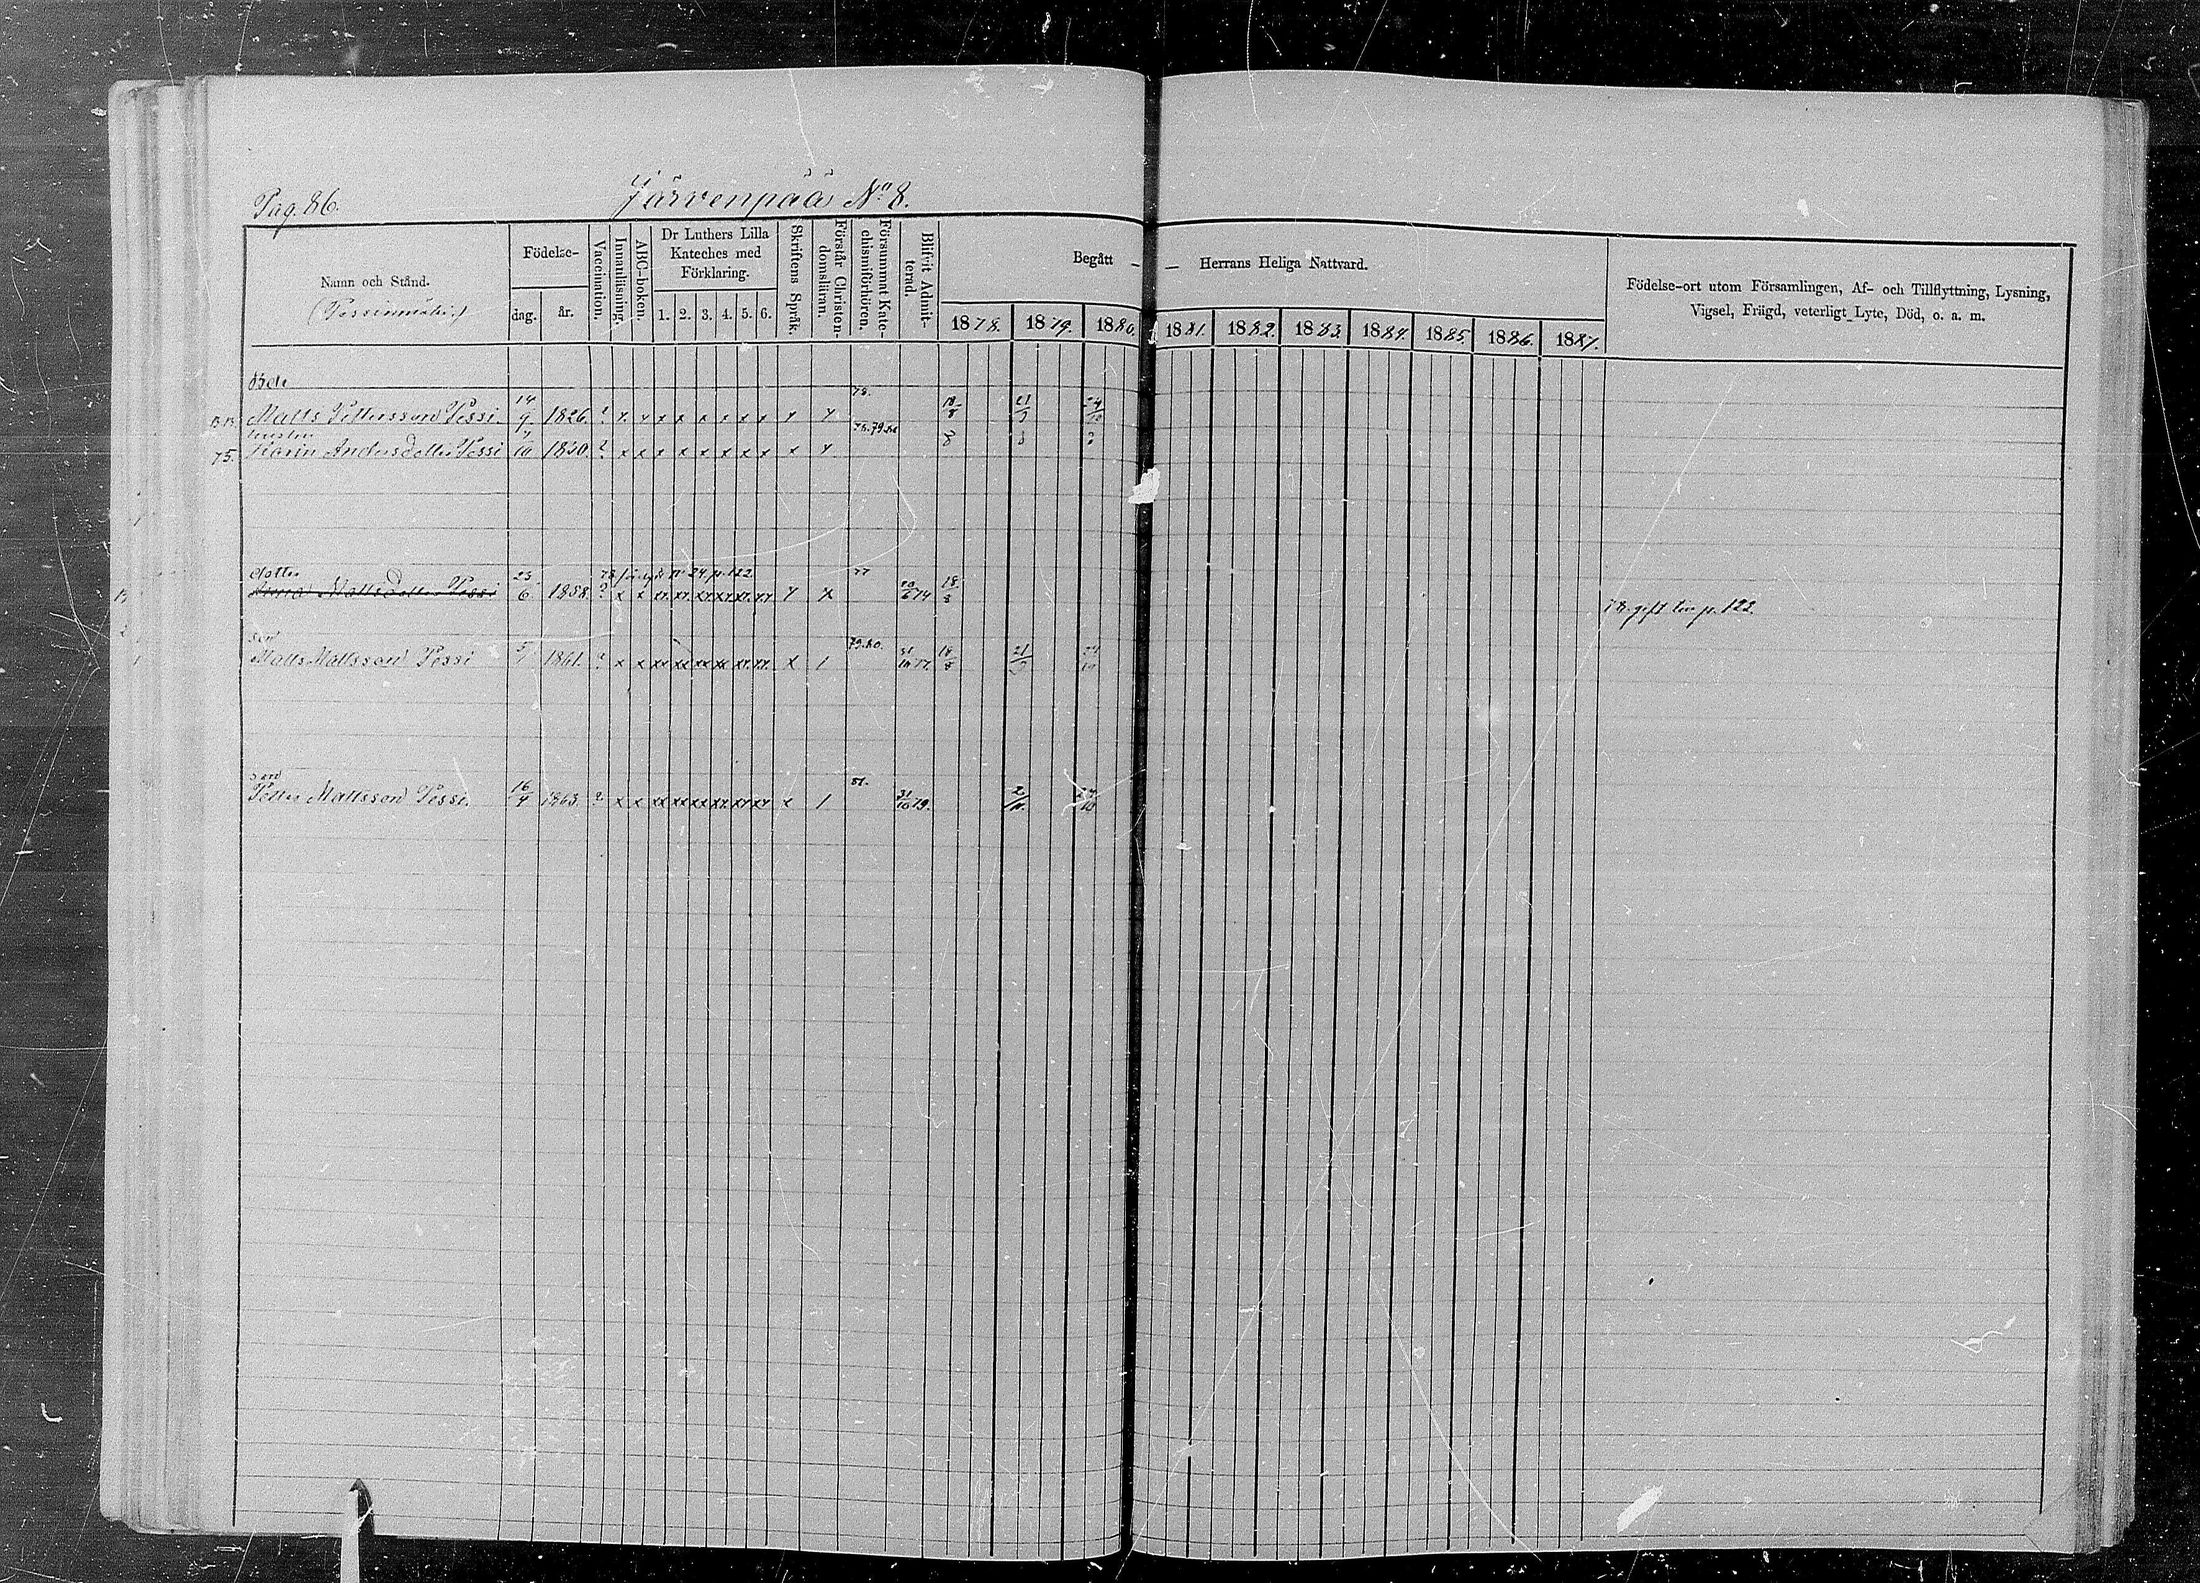 Pag. 86.
Järvenpää No 8.
Namn och Stånd.
(Pessinmäki.)
Födelse-
dag.
år.
Vaccination.
Innanläsning.
ABC-boken.
Dr Luthers Lilla
Kateches med
Förklaring.
1. 2. 3. 4. 5. 6.
Skriftens Språk.
Förstår Christen-
domsläran.
Försummat Kate-
chismiförhören.
Blifvit Admit-
terad.
Begått — — Herrans Heliga Nattvard.
1878. 1879. 1880. 1881. 1882. 1883. 1884. 1885. 1886. 1887.
Födelse-ort utom Församlingen, Af- och Tillflyttning, Lysning,
Vigsel, Frägd, veterligt Lyte, Död, o. a. m.
78.
Matts Pettersson Pessi. 14/9 1826. ? x x x x x x x x x x 18/8 21/9 24/10
hustru 78. 79. 80
75. Karin Andersdotter Pessi 10 ? x x x x x x x x x x
dotter 77
Anna Mattsdotter Pessi 23/6 1858. ? x x xx. xx. xx xx xx. xx x x 18/8
78. gift 122.
son 79. 80.
Matts Mattsson Pessi 5 1861. ? x x xx xx xx xx xx. xx. x 1 31/10 77. 18/8 21/9 24/10
son 81.
Petter Mattsson Pessi. 16/4 1863. ? x x xx xx xx xx. xx xx x 1 31/10 79. 2/11. 24/10